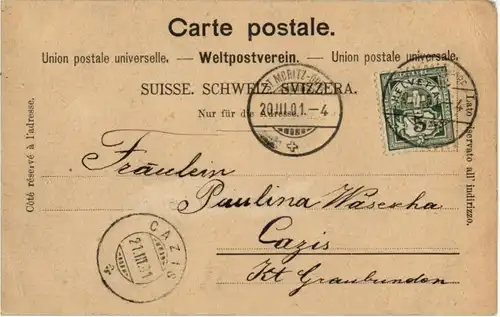 Carte postale.
Union postale universelle. — Weltpostverein. — Unione postale universale.
SUISSE. SCHWEIZ. SVIZZERA.
Nur für die Adresse.
Côté réservé à l'adresse.
Lato riservato all' indirizzo.
ST. MORITZ
20.III.01.-4
5
Fräulein
Paulina Wasescha
Cazis
Kt Graubunden
CAZIS
21.III.01